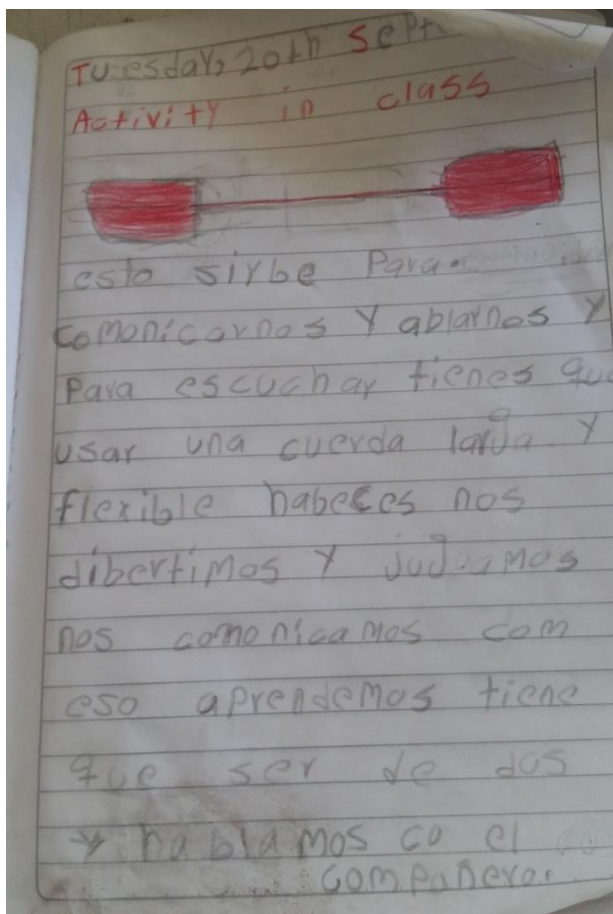 Tuesday, 20th Sept
Activity in class
esto sirbe Para.
comonicarnos Y ablarnos Y
Para escuchar tienes que
usar una cuerda larga Y
flexible habeces nos
dibertimos Y jugamos
nos comonicamos com
eso aprendemos tiene
que ser de dos
y hablamos co el
compañero.